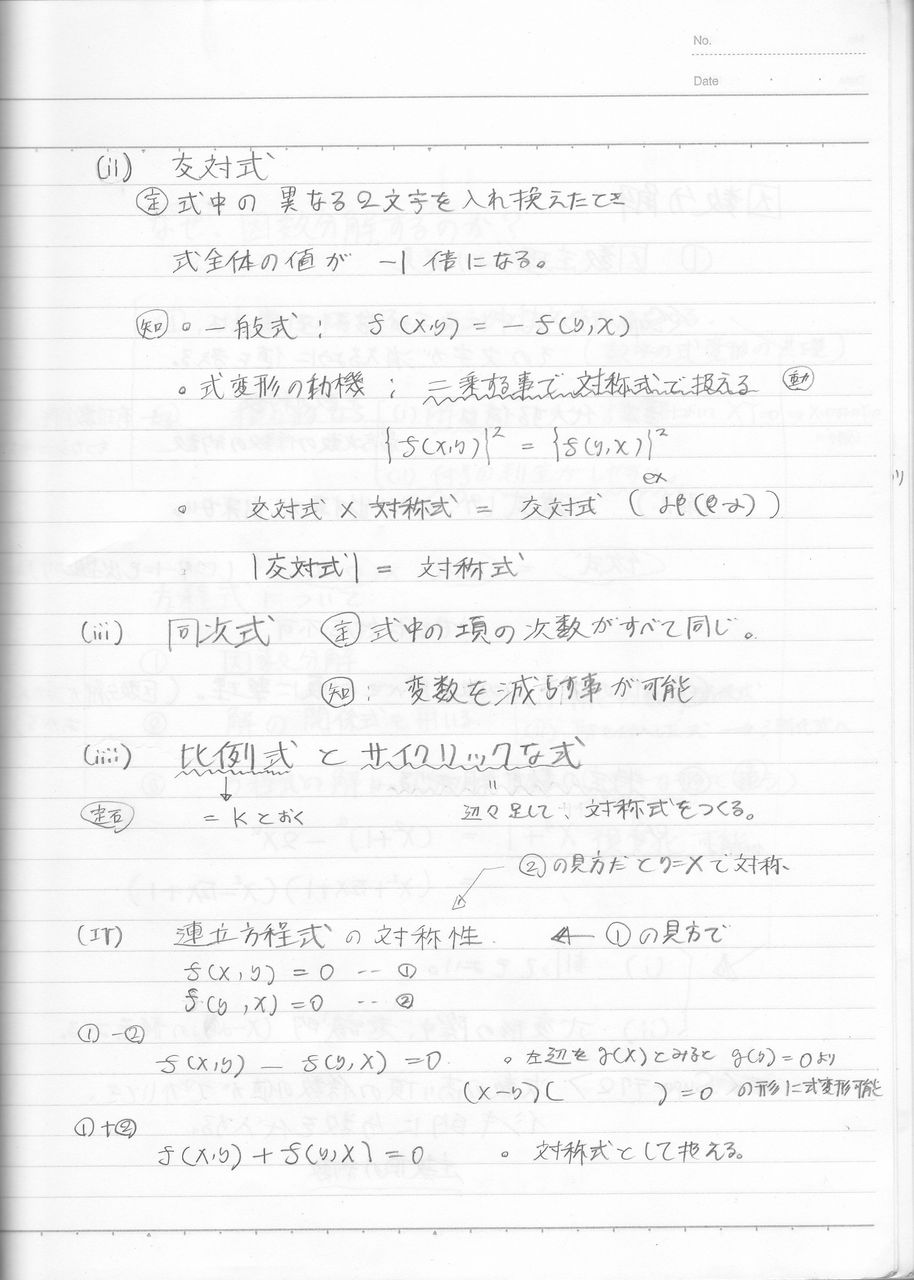 No.
Date
(ii) 交対式
定 式中の異なる2文字を入れ換えたとき
式全体の値が -1倍になる。
知 ・一般式 : f(x,y) = - f(y,x)
・式変形の動機 ; 二乗する事で対称式で捉える 動
{f(x,y)}² = {f(y,x)}²
・ 交対式 × 対称式 = 交対式 (ex αβ(β-α))
|交対式| = 対称式
(iii) 同次式 定 式中の項の次数がすべて同じ。
知 : 変数を減らす事が可能
(iiii) 比例式とサイクリックな式
定石 = kとおく 辺々足して、対称式をつくる。
②の見方だとy=xで対称、
(IV) 連立方程式の対称性. ← ①の見方で
f(x,y) = 0 -- ①
f(y,x) = 0 -- ②
①-②
f(x,y) - f(y,x) = 0. ・左辺をg(x)とみると g(y)=0より
(x-y)( ) = 0 の形に式変形可能
①+②
f(x,y) + f(y,x) = 0 ・対称式として捉える。